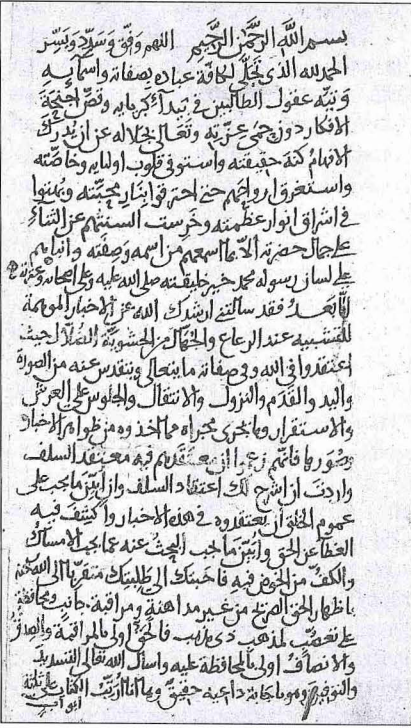 بسم الله الرحمن الرحيم اللهم وفق وسدد ويسر
الحمد لله الذي تجلى لكافة عباده بصفاته واسمايه
وتيه عقول الطالبين في بيداء كبريايه وقص اجنحة
الافكار دون حمى عزته وتعالى بجلاله عن ان يدرك
الافهام كنه حقيقته واستوفى قلوب اوليايه وخاصته
واستغرق ارواحهم حتى احترقوا بنار محبته وبهتوا
في اشراق انوار عظمته وخرست السنتهم عن الثناء
على جمال حضرته الا بما اسمعهم من اسمه وصفته وانباهم
على لسان رسوله محمد خير خليقته صلى الله عليه وعلى اصحابه وعترته
اما بعد فقد سالتني ارشدك الله عن الاخبار الموهمة
للتشبيه عند الرعاع والجهال من الحشوية الضلال حيث
اعتقدوا في الله وفي صفاته ما يتعالى ويتقدس عنه من الصورة
واليد والقدم والنزول والانتقال والجلوس على العرش
والاستقرار وما يجري مجراه مما اخذوه من ظواهر الاخبار
وصورها وانهم زعموا ان معتقدهم فيه معتقد السلف
واردت ان اشرح لك اعتقاد السلف وان ابين ما يجب على
عموم الخلق ان يعتقدوه في هذه الاخبار واكشف فيه
الغطا عن الحق وابين ما يجب البحث عنه عما يجب الامساك
والكف عن الخوض فيه فاجبتك الى طلبتك متقربا الى الله
باظهار الحق الصريح من غير مداهنة ومراقبة جانب ومحافظة
على تعصب لمذهب ذي مذهب فالحق اولى بالمراقبة والصدق
والانصاف اولى بالمحافظة عليه واسال الله تعالى التسديد
والتوفيق وهو باجابة داعيه حقيق وها انا ارتب الكتاب على ثلثة
ابواب